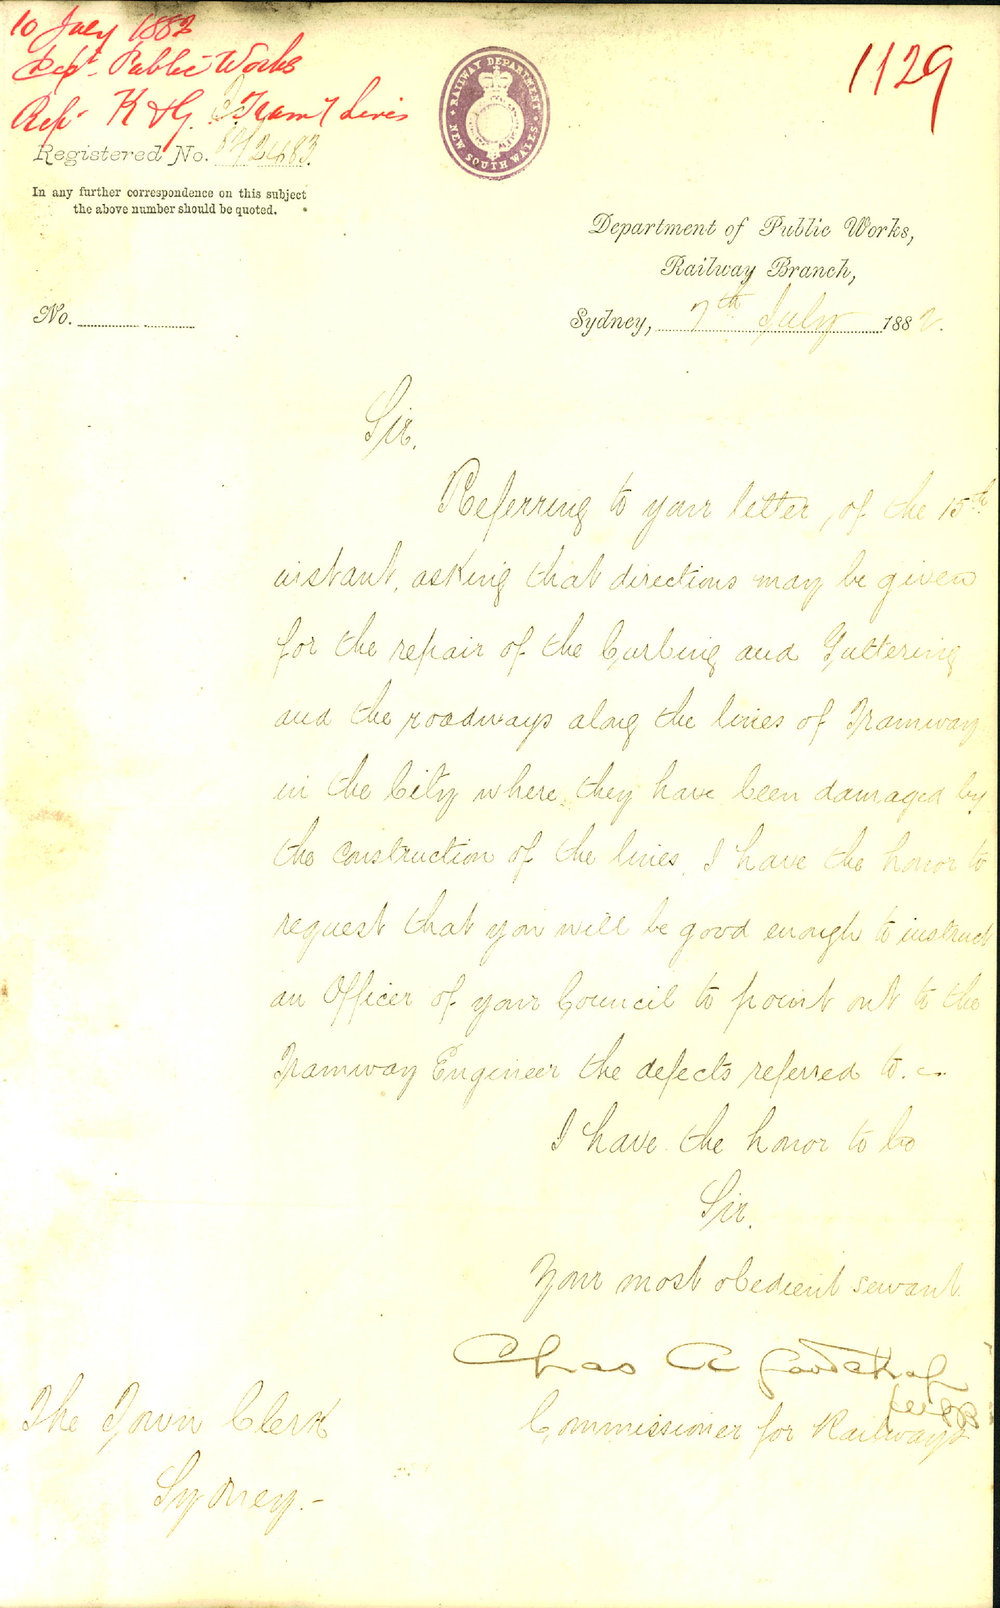 10 July 1882
Dept. Public Works
Rep. K & G. Tram Lines
1129
RAILWAY DEPARTMENT
NEW SOUTH WALES
Registered No.
In any further correspondence on this subject
the above number should be quoted.
Department of Public Works,
Railway Branch,
No.
Sydney, 7th July 1882.
Sir.
Referring to your letter, of the 15th
instant, asking that directions may be given
for the repair of the Curbing and Guttering
and the roadways along the lines of Tramway
in the City where they have been damaged by
the construction of the lines, I have the honor to
request that you will be good enough to instruct
an Officer of your Council to point out to the
Tramway Engineer the defects referred to.
I have the honor to be
Sir.
Your most obedient servant.
Chas A Goodchap
Commissioner for Railways
The Town Clerk
Sydney.-